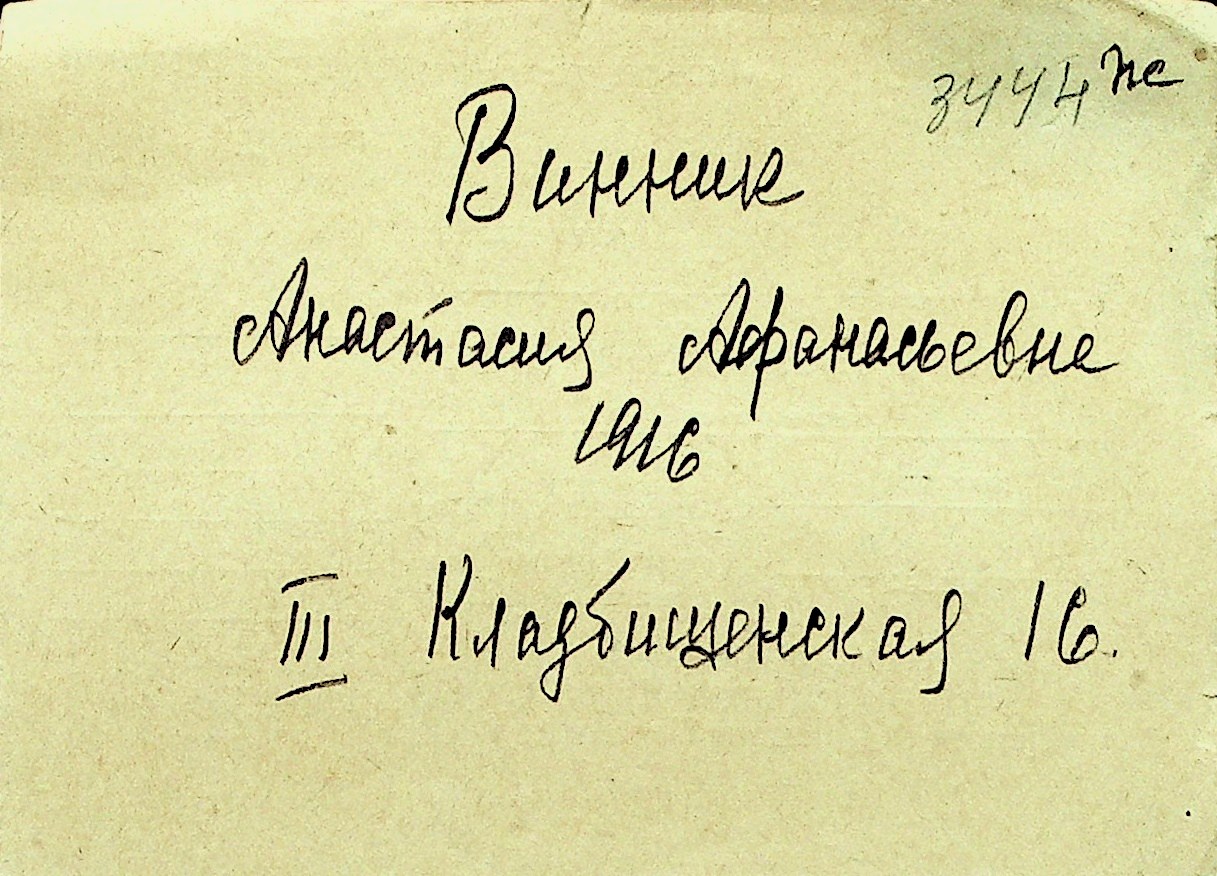 3444 пс
Винник
Анастасия Афанасьевна
1916
III Кладбищенская 16.